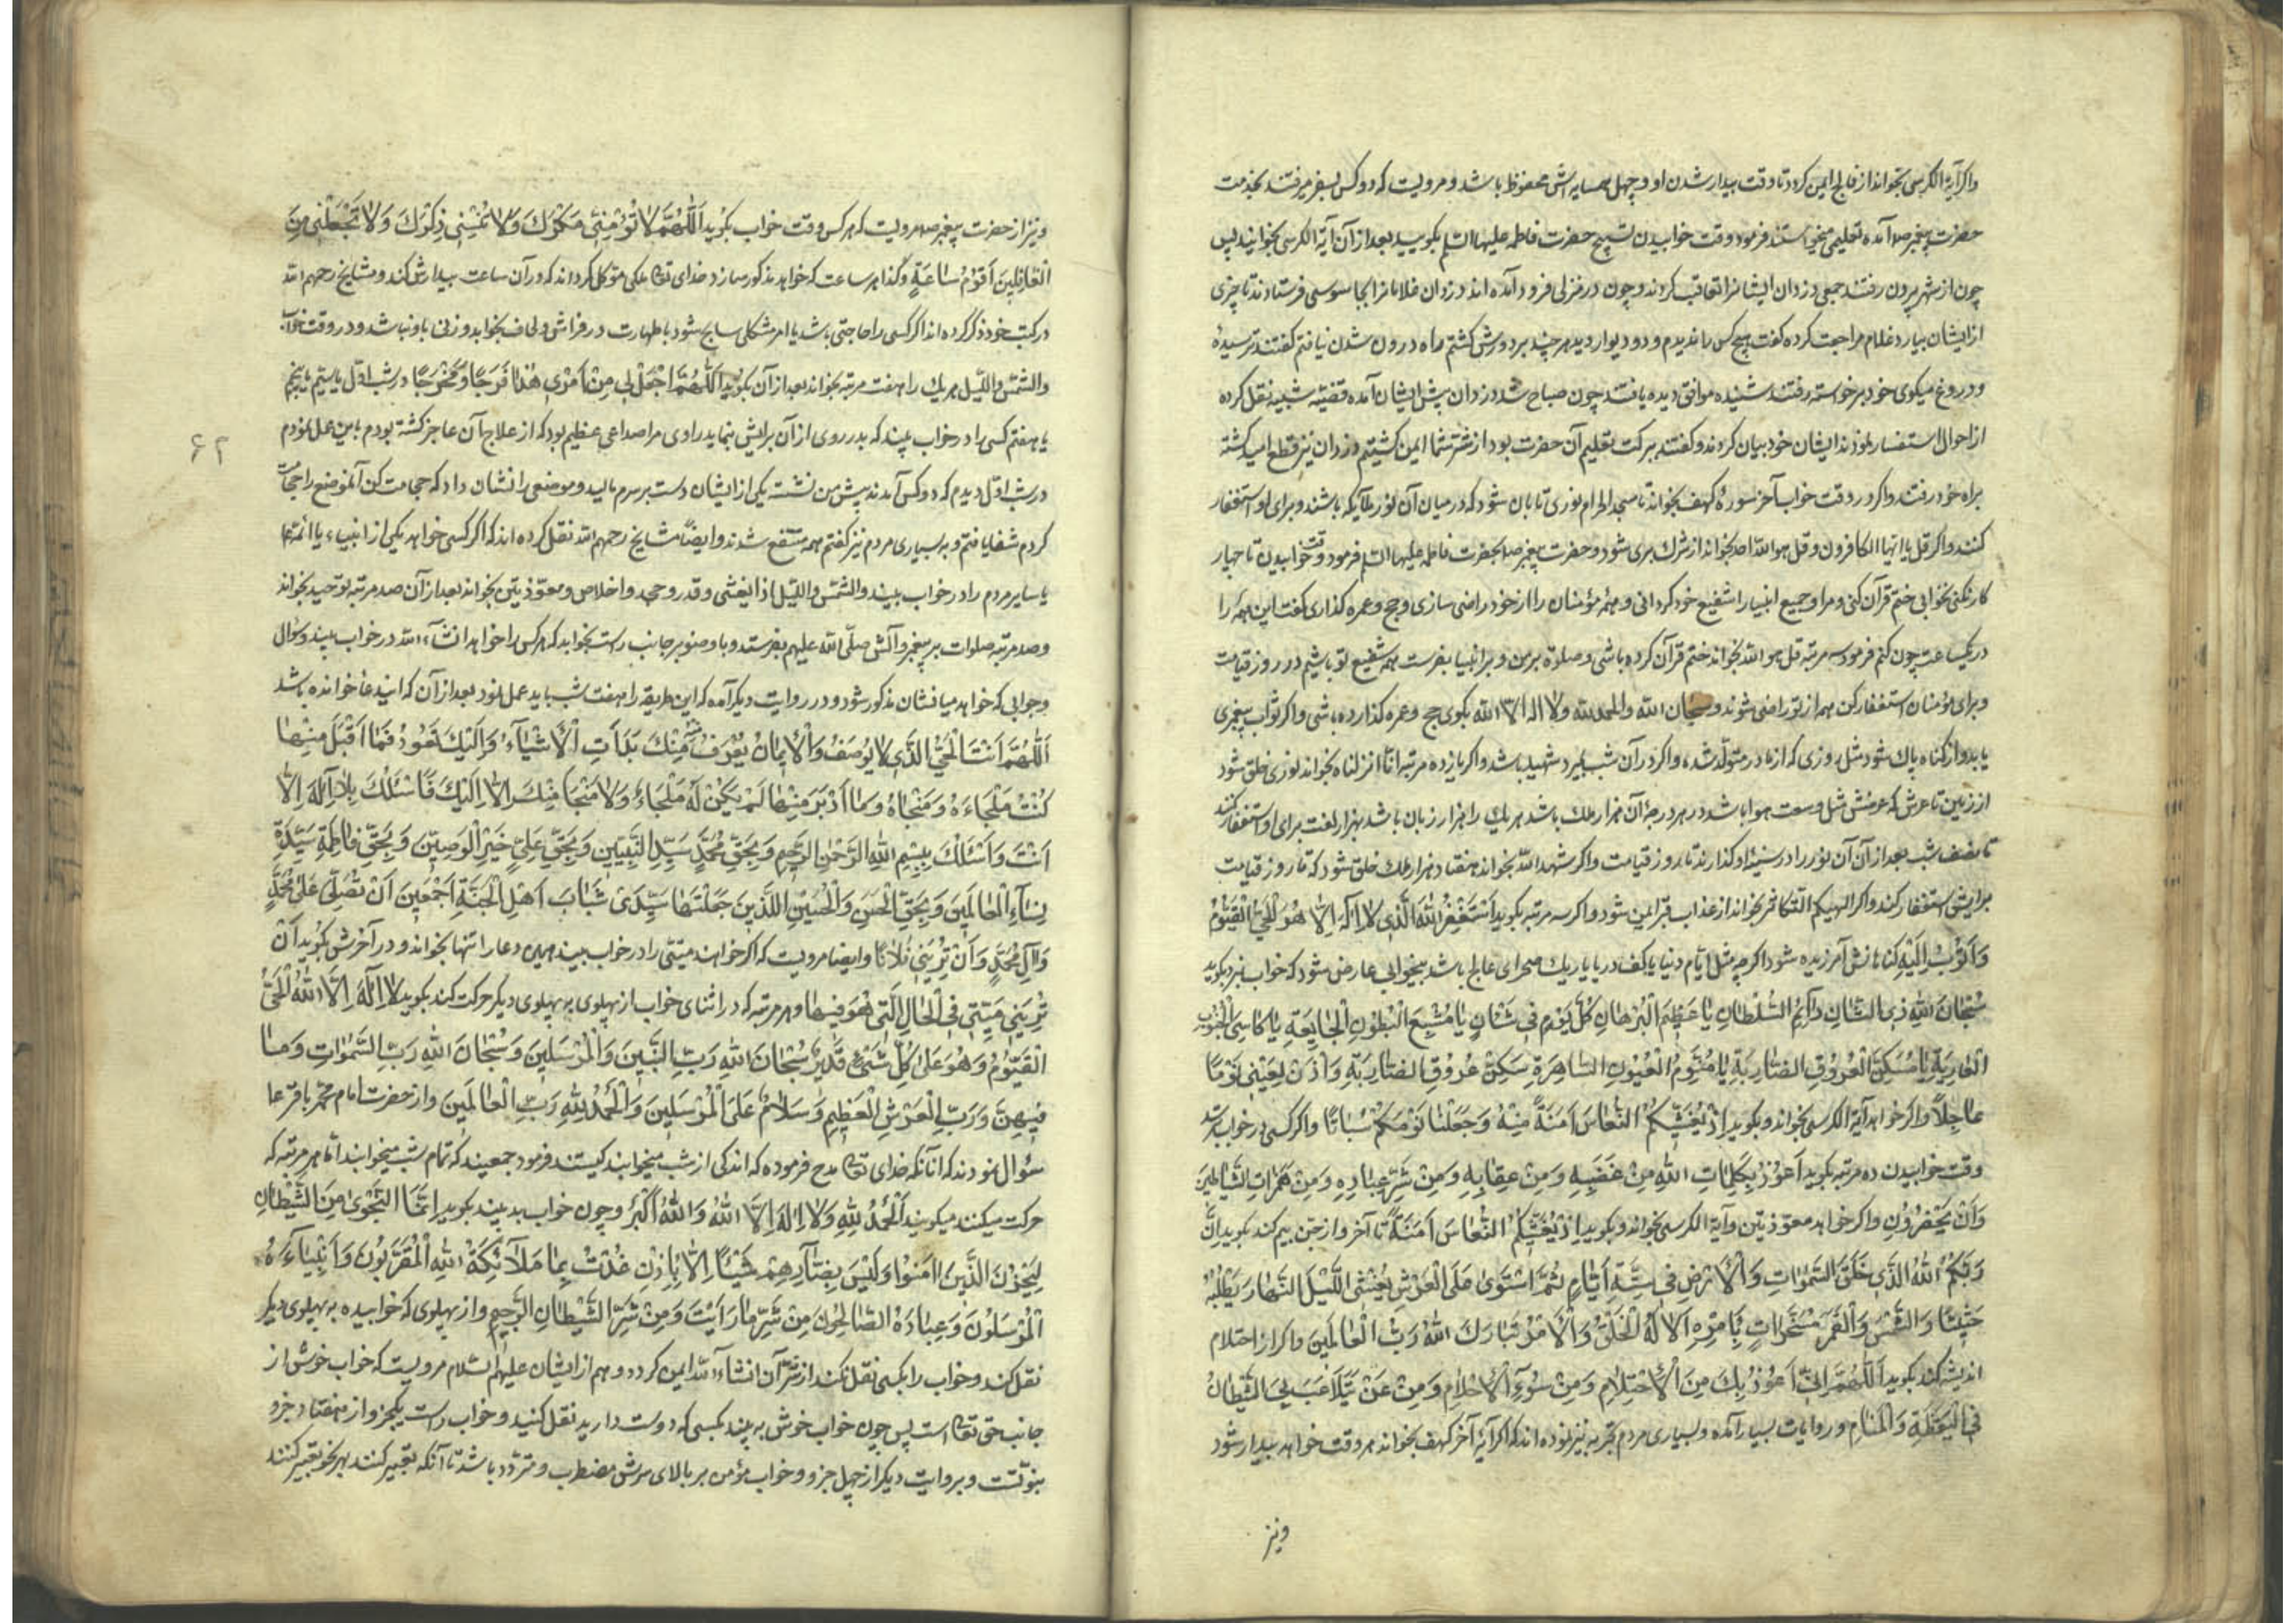 واکر آیة الکرسی بخواند از فالج ایمن کردد تا وقت بیدار شدن او و چهل همسایه اش محفوظ باشد و مرویست که دو کس بسفر میرفتند بخدمت
حضرت پیغمبر صه آمده تعلیمی میخواستند فرمود وقت خوابیدن تسبیح حضرت فاطمه علیها السلم بکویید بعد از آن آیة الکرسی بخوانید پس
چون از شهر بیرون رفتند جمعی دزدان ایشانرا تعاقب کردند و چون در منزلی فرود آمده اند دزدان غلامانرا انجا بجاسوسی فرستادند تا چیزی
از ایشان بیارد غلام مراجعت کرده کفت هیچ کس را ندیدم و دو دیوار دیدم هر چند بر دورش کشتم راه درون شدن نیافتم کفتند ترسیدهٔ
و دروغ میکوی خود برخواسته رفتند شنیده موافق دیده یافتند چون صباح شد دزدان پیش ایشان آمده قضیّه شبینه نقل کرده
از احوال استفسار نمودند ایشان خود بیان کردند و کفتند ببرکت تعلیم آن حضرت بود از شرّ شما ایمن کشتیم دزدان نیز قطع امید کشته
براه خود رفتند واکر در وقت خواب آخر سورهٔ کهف بخواند تا مسجد الحرام نوری تابان شود که در میان آن نور ملایکه باشند و برای او استغفار
کنند واکر قل یا ایّها الکافرون و قل هو اللّه احد بخواند از شرک بری شود و حضرت پیغمبر صه بحضرت فاطمه علیها السلم فرمود وقت خوابیدن تا چهار
کار نکنی نخوابی ختم قرآن کنی و مرا و جمیع انبیا را شفیع خود کردانی و همهٔ مؤمنان را از خود راضی سازی و حج و عمره کذاری کفت این همه را
در یکساعت چون کنم فرمود سه مرتبه قل هو اللّه بخواند ختم قرآن کرده باشی و صلوة بر من و بر انبیا بفرست همه شفیع تو باشیم در روز قیامت
و برای مؤمنان استغفار کن همه از تو راضی شوند و سبحان اللّه والحمد للّه ولا اله الا اللّه بکوی حج و عمره کذارده باشی واکر ثواب پیغمبری
یابد و از کناه پاک شود مثل روزی که از مادر متولّد شده واکر در آن شب بمیرد شهید باشد واکر یازده مرتبه انّا انزلناه بخواند نوری خلق شود
از زمین تا عرش که عرضش مثل وسعت هوا باشد در هر درجهٔ آن هزار ملک باشد هر یک را هزار زبان باشد بهزار لغت برای او استغفار کنند
تا نصف شب بعد از آن آن نور را در سینهٔ او کذارند تا روز قیامت واکر شهد اللّه بخواند هفتاد هزار ملک خلق شود که تا روز قیامت
برایش استغفار کند واکر الهیکم التکاثر بخواند از عذاب قبر ایمن شود واکر سه مرتبه بکوید اَسْتَغْفِرُ اللّٰهَ الَّذِی لا اِلٰهَ اِلّا هُوَ الْحَیُّ الْقَیُّومُ
وَاَتُوبُ اِلَیْهِ کناهانش آمرزیده شود اکرچه مثل ایّام دنیا یا کف دریا یا ریک صحرای عالج باشد بیخوابی عارض شود که خواب نبرد بکوید
سُبْحانَ اللّٰهِ ذِی الشَّانِ دآئِمِ السُّلْطانِ یا عَظیمَ الْبُرْهانِ کُلَّ یَوْمٍ فی شَانٍ یا مُشْبِعَ الْبُطُونِ الْجایِعَةِ یا کاسِیَ الْجُنُوبِ
الْعارِیَةِ یا مُسَکِّنَ الْعُرُوقِ الضّارِبَةِ یا مُنَوِّمَ الْعُیُونِ السّاهِرَةِ سَکِّنْ عُرُوقِ الضّارِبَةِ وَاْذَنْ لِعَیْنِی نَوْمًا
عاجِلاً واکر خواهد آیة الکرسی بخواند و بکوید اِذْ یُغَشّیکُمُ النُّعاسَ اَمَنَةً مِنْهُ وَجَعَلْنا نَوْمَکُمْ سُباتًا واکر کسی در خواب ترسد
وقت خوابیدن ده مرتبه بکوید اَعُوذُ بِکَلِماتِ اللّٰهِ مِنْ غَضَبِهِ وَمِنْ عِقابِهِ وَمِنْ شَرِّ عِبادِهِ وَمِنْ هَمَزاتِ الشَّیاطینَ
وَاَنْ یَحْضُرُونِ واکر خواهد معوّذتین و آیة الکرسی بخواند و بکوید اِذْ یُغَشّیکُمُ النُّعاسَ اَمَنَةً تا آخر و از جن بیم کند بکوید اِنَّ
رَبَّکُمُ اللّٰهُ الَّذی خَلَقَ السَّمٰوٰاتِ وَالْاَرْضِ فی سِتَّةِ اَیّامٍ ثُمَّ اسْتَوٰی عَلَی الْعَرْشِ یُغْشِی اللَّیْلَ النَّهارَ یَطْلُبُهُ
حَثیثًا وَالشَّمْسَ وَالْقَمَرَ مُسَخَّراتٍ بِاَمْرِهِ اَلا لَهُ الْخَلْقُ وَالْاَمْرُ تَبارَکَ اللّٰهُ رَبُّ الْعالَمینَ واکر از احتلام
اندیشه کند بکوید اَللّٰهُمَّ اِنّی اَعُوذُ بِکَ مِنَ الْاِحْتِلامِ وَمِنْ سُوءِ الْاَحْلامِ وَمِنْ یَتَلاعَبَ بِیَ الشَّیْطانُ
فِی الْیَقْظَةِ وَالْمَنامِ و روایات بسیار آمده و بسیاری مردم تجربه نیز نموده اند که اکر آیة آخر کهف بخواند هر وقت خواهد بیدار شود
ونیز
ونیز از حضرت پیغمبر صه مرویست که هر کس وقت خواب بکوید اَللّٰهُمَّ لا تُؤْمِنّی مَکْرَکَ وَلا تُنْسِنی ذِکْرَکَ وَلا تَجْعَلْنی مِنَ
الْغافِلینَ اَقُومُ ساعَةٍ وکذا هر ساعت که خواهد مذکور سازد خدای تعالی ملکی موکّل کرداند که در آن ساعت بیدارش کند و مشایخ رحمهم اللّه
در کتب خود ذکر کرده اند اکر کسی را حاجتی باشد یا امر مشکلی سانح شود با طهارت در فراش و لحاف بخوابد و زنی با او نباشد و در وقت خواب
والشّمس واللّیل هر یک را هفت مرتبه بخواند بعد از آن بکوید اَللّٰهُمَّ اجْعَلْ لِی مِنْ اَمْرِی هٰذا فَرَجًا وَمَخْرَجًا در شب اوّل یا سیّم یا پنجم
یا هفتم کسی را در خواب بیند که بدر روی از آن برایش بنماید راوی مرا صداعی عظیم بود که از علاج آن عاجز کشته بودم باین عمل نمودم
۶۲
در شب اوّل دیدم که دو کس آمدند پیش من نشسته یکی از ایشان دست بر سرم مالید و موضعی را نشان داد که حجامت کن آنموضع را حجامت
کردم شفا یافتم و به بسیاری مردم نیز کفتم همه منتفع شدند و ایضًا مشایخ رحمهم اللّه نقل کرده اند که اکر کسی خواهد یکی از انبیاء یا ائمّه عا
یا سایر مردم را در خواب بیند والشّمس واللّیل اذا یغشی و قدر و جحد و اخلاص و معوّذتین بخواند بعد از آن صد مرتبه توحید بخواند
و صد مرتبه صلوات بر پیغمبر و آلش صلّی اللّه علیهم بفرستد و با وضو بر جانب راست بخوابد که هر کس را خواهد انشآء اللّه در خواب بیند و سؤال
و جوابی که خواهد میانشان مذکور شود و در روایت دیکر آمده که این طریقه را هفت شب باید عمل نمود بعد از آن که ایندعا خوانده باشد
اَللّٰهُمَّ اَنْتَ الْحَیُّ الَّذی لا یُوصَفُ وَالْایمانُ یُعْرَفُ مِنْهُ مِنْکَ بَدَاَتِ الْاَشْیآءُ وَاِلَیْکَ تَعُودُ فَما اَقْبَلَ مِنْها
کُنْتَ مَلْجَاءَهُ وَمَنْجاهُ وَما اَدْبَرَ مِنْها لَمْ یَکُنْ لَهُ مَلْجَاءٌ وَلا مَنْجا مِنْکَ اِلّا اِلَیْکَ فَاَسْئَلُکَ بِلا اِلٰهَ اِلّا
اَنْتَ وَاَسْئَلُکَ بِبِسْمِ اللّٰهِ الرَّحْمٰنِ الرَّحیمِ وَبِحَقِّ مُحَمَّدٍ سَیِّدِ النَّبِیّینَ وَبِحَقِّ عَلِیٍّ خَیْرِ الْوَصِیّینَ وَبِحَقِّ فاطِمَةِ سَیِّدَةِ
نِسآءِ الْعالَمینَ وَبِحَقِّ الْحَسَنِ وَالْحُسَیْنِ اللَّذَیْنِ جَعَلْتَهُما سَیِّدَیْ شَبابَ اَهْلِ الْجَنَّةِ اَجْمَعینَ اَنْ تُصَلِّیَ عَلٰی مُحَمَّدٍ
وَآلِ مُحَمَّدٍ وَاَنْ تُرِیَنی فُلانًا و ایضا مرویست که اکر خواهند میّتی را در خواب بینند همین دعا را تنها بخواند و در آخرش بکوید اَنْ
تُرِیَنی مَیِّتی فِی الْحالِ الَّتی هُوَ فیها و هر مرتبه که در اثنای خواب از پهلوی به پهلوی دیکر حرکت کند بکوید لا اِلٰهَ اِلَّا اللّٰهُ الْحَیُّ
الْقَیُّومُ وَهُوَ عَلٰی کُلِّ شَیْءٍ قَدیرٌ سُبْحانَ اللّٰهِ رَبِّ النَّبِیّینَ وَالْمُرْسَلینَ وَسُبْحانَ اللّٰهِ رَبِّ السَّمٰواتِ وَما
فیهِنَّ وَرَبِّ الْعَرْشِ الْعَظیمِ وَسَلامٌ عَلَی الْمُرْسَلینَ وَالْحَمْدُ لِلّٰهِ رَبِّ الْعالَمینَ و از حضرت امام محمّد باقر عا
سؤال نمودند که آنانکه خدای تعالی مدح فرموده که اندکی از شب میخوابند کیستند فرمود جمعیند که تمام شب میخوابند امّا هر مرتبه که
حرکت میکنند میکویند اَلْحَمْدُ لِلّٰهِ وَلا اِلٰهَ اِلَّا اللّٰهُ وَاللّٰهُ اَکْبَرُ و چون خواب بد بیند بکوید اِنَّمَا النَّجْوٰی مِنَ الشَّیْطانِ
لِیَحْزُنَ الَّذینَ اٰمَنُوا وَلَیْسَ بِضآرِّهِمْ شَیْئًا اِلّا بِاِذْنِ عُذْتُ بِما مَلآئِکَةُ اللّٰهِ الْمُقَرَّبُونَ وَاَنْبِیآءُهُ
الْمُرْسَلُونَ وَعِبادُهُ الصّالِحُونَ مِنْ شَرِّ ما رَاَیْتُ وَمِنْ شَرِّ الشَّیْطانِ الرَّجیمِ و از پهلوی که خوابیده به پهلوی دیکر
نقل کند و خواب را بکسی نقل نکند از شرّ آن انشاء اللّه ایمن کردد و هم از ایشان علیهم السّلام مرویست که خواب خوش از
جانب حق تعالی است پس چون خواب خوش به بیند بکسی که دوست دارید نقل کنید و خواب راست یکجزو از هفتاد جزو
نبوّتست و بروایت دیکر از چهل جزو و خواب مؤمن بر بالای سرش مضطرب و متردّد باشد تا آنکه تعبیر کنند بهر نحو تعبیر کنند